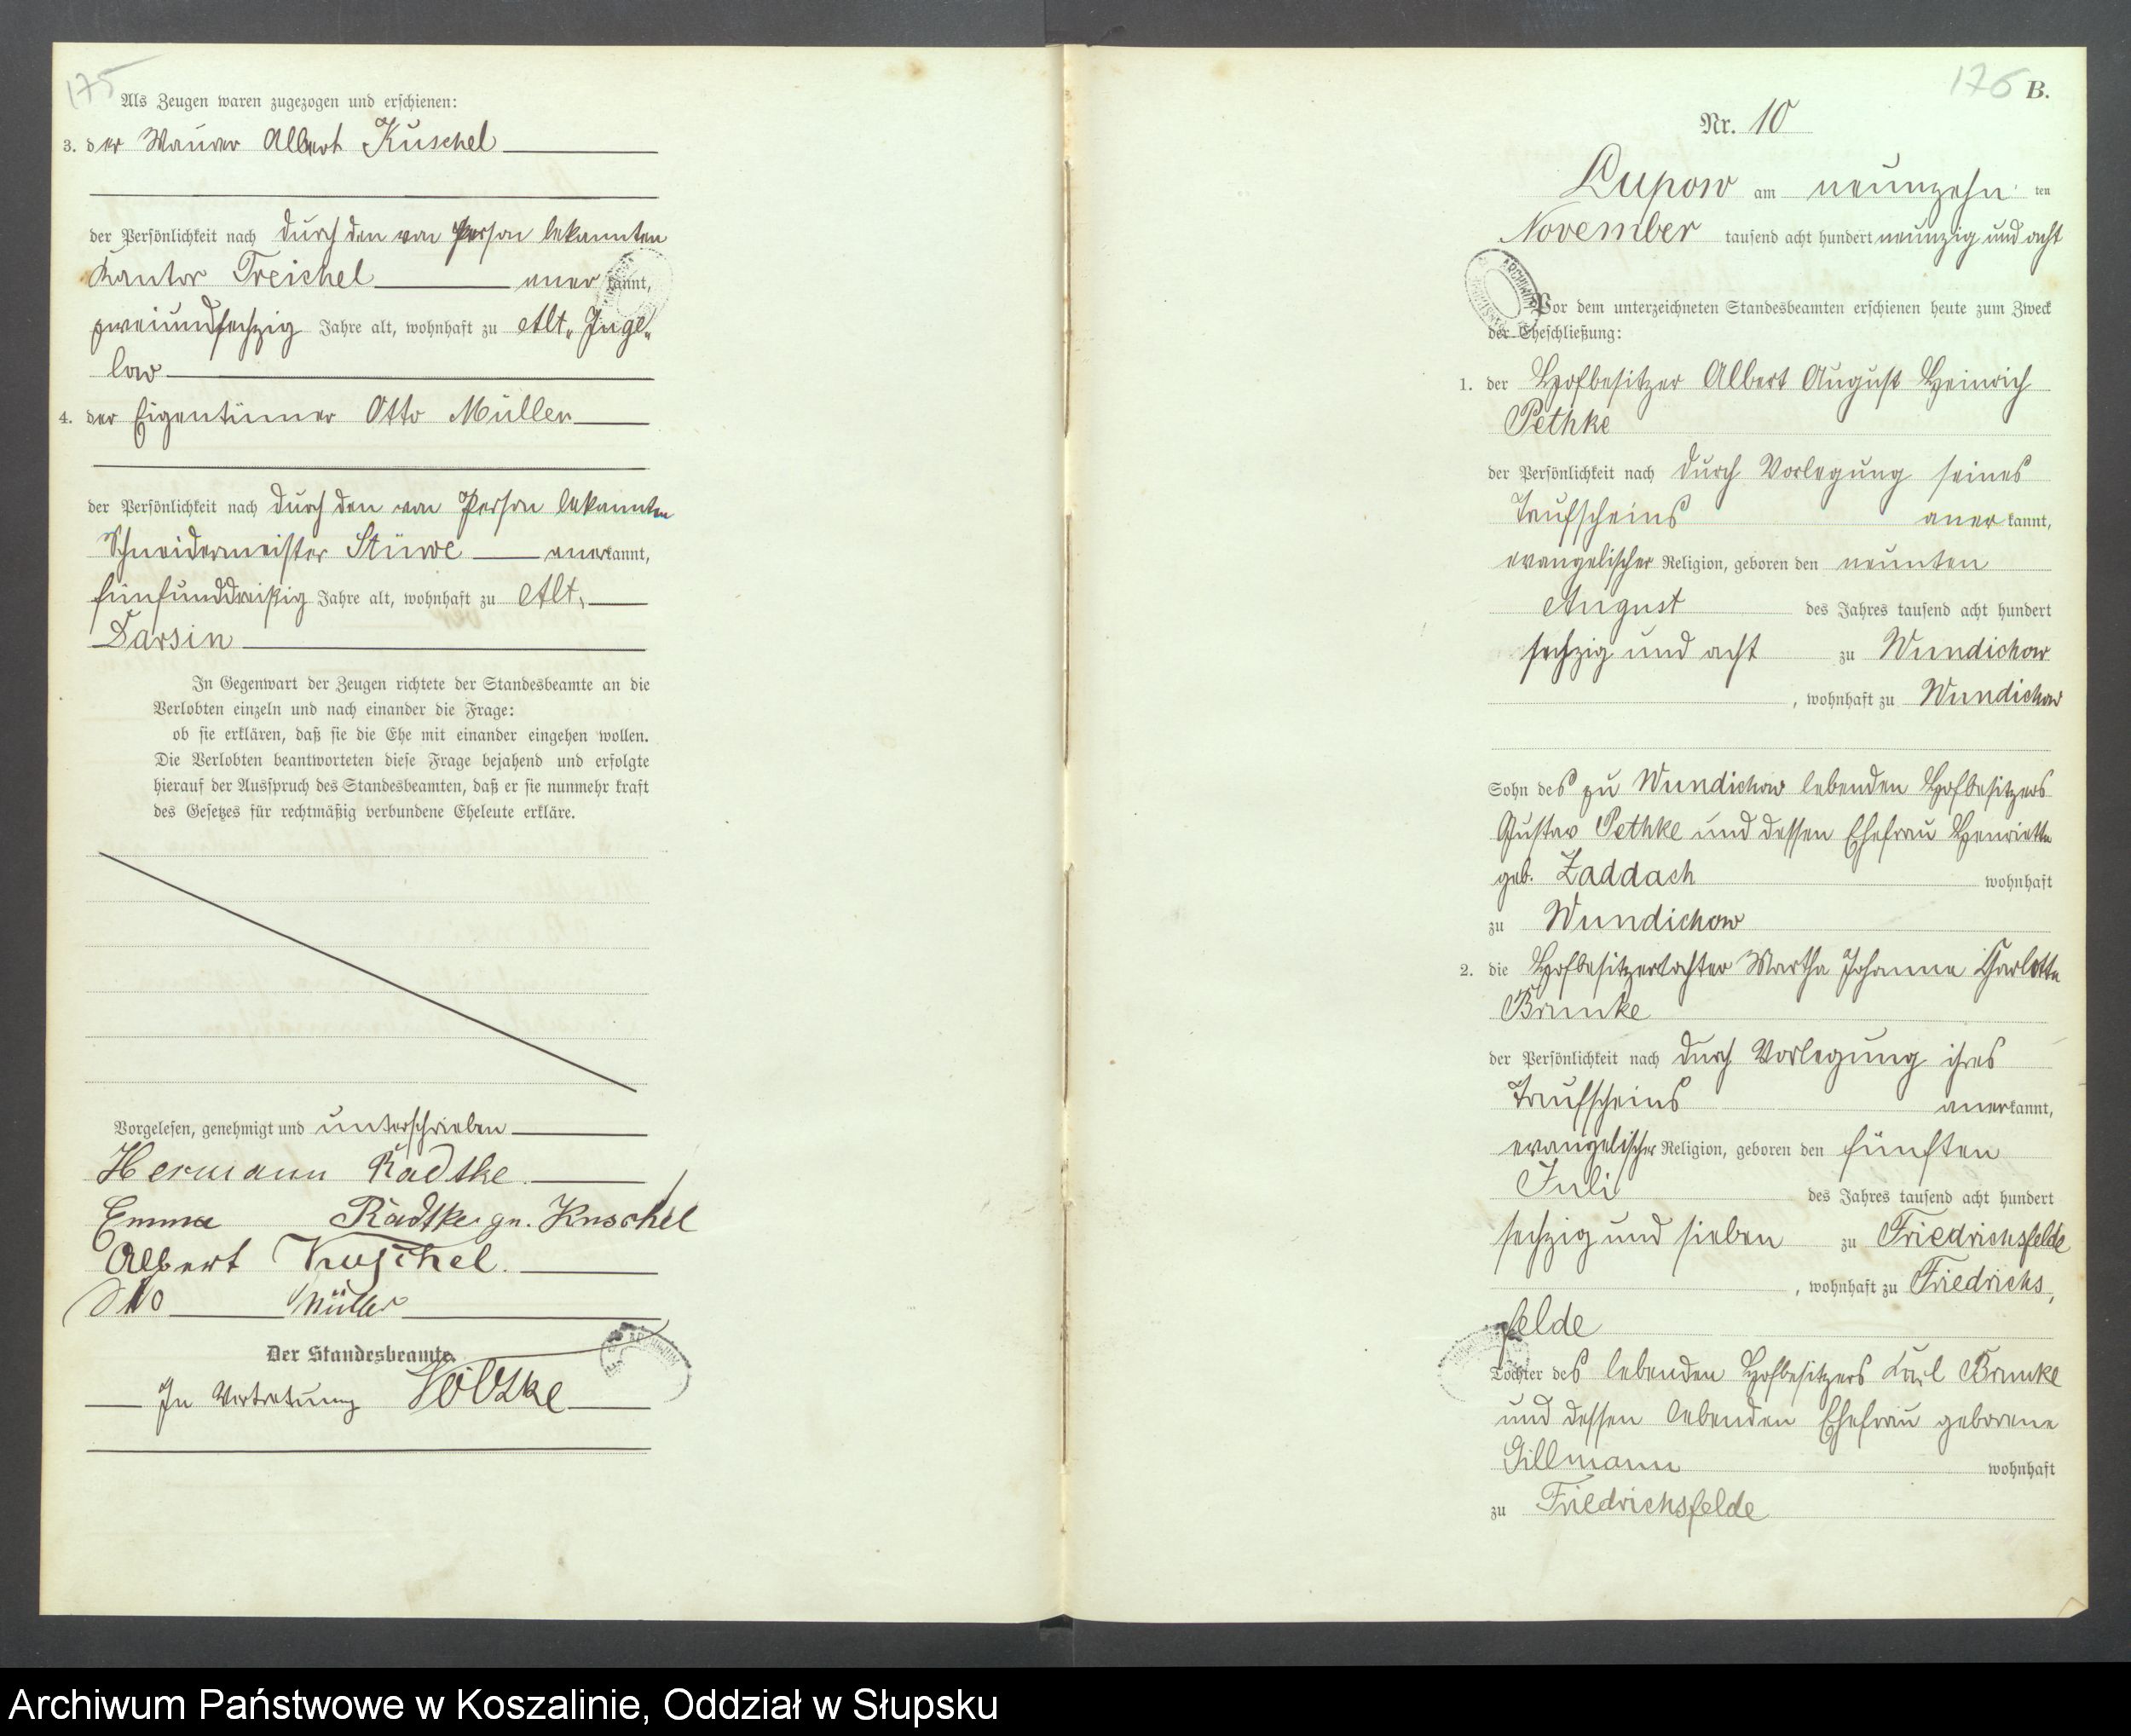 175
Als Zeugen waren zugezogen und erschienen:
3. der Maurer Albert Kuschel
der Persönlichkeit nach durch den von Person bekannten
Kantor Treichel anerkannt,
zweiundsechzig Jahre alt, wohnhaft zu Alt-Juge-
low
4. der Eigentümer Otto Müller
der Persönlichkeit nach durch den von Person bekannten
Schneidermeister Stüwe anerkannt,
fünfunddreißig Jahre alt, wohnhaft zu Alt-
Darsin
In Gegenwart der Zeugen richtete der Standesbeamte an die
Verlobten einzeln und nach einander die Frage:
ob sie erklären, daß sie die Ehe mit einander eingehen wollen.
Die Verlobten beantworteten diese Frage bejahend und erfolgte
hierauf der Ausspruch des Standesbeamten, daß er sie nunmehr kraft
des Gesetzes für rechtmäßig verbundene Eheleute erkläre.
Vorgelesen, genehmigt und unterschrieben
Hermann Radtke
Emma Radtke ge. Kuschel
Albert Kuschel.
Otto Müller
Der Standesbeamte.
In Vertretung Völzke
176 B.
Nr. 10
Lupow am neunzehn ten
November tausend acht hundert neunzig und acht
Vor dem unterzeichneten Standesbeamten erschienen heute zum Zweck
der Eheschließung:
1. der Hofbesitzer Albert August Heinrich
Pethke
der Persönlichkeit nach durch Vorlegung seines
Taufscheins anerkannt,
evangelischer Religion, geboren den neunten
August des Jahres tausend acht hundert
sechzig und acht zu Wundichow
, wohnhaft zu Wundichow
Sohn des zu Wundichow lebenden Hofbesitzers
Gustav Pethke und dessen Ehefrau Henriette
geb. Zaddach wohnhaft
zu Wundichow
2. die Hofbesitzertochter Martha Johanna Charlotte
Brunke
der Persönlichkeit nach durch Vorlegung ihres
Taufscheins anerkannt,
evangelischer Religion, geboren den fünften
Juli des Jahres tausend acht hundert
sechzig und sieben zu Friedrichsfelde
, wohnhaft zu Friedrichs-
felde
Tochter des lebenden Hofbesitzers Karl Brunke
und dessen lebenden Ehefrau geborene
Gillmann wohnhaft
zu Friedrichsfelde
Archiwum Państwowe w Koszalinie, Oddział w Słupsku